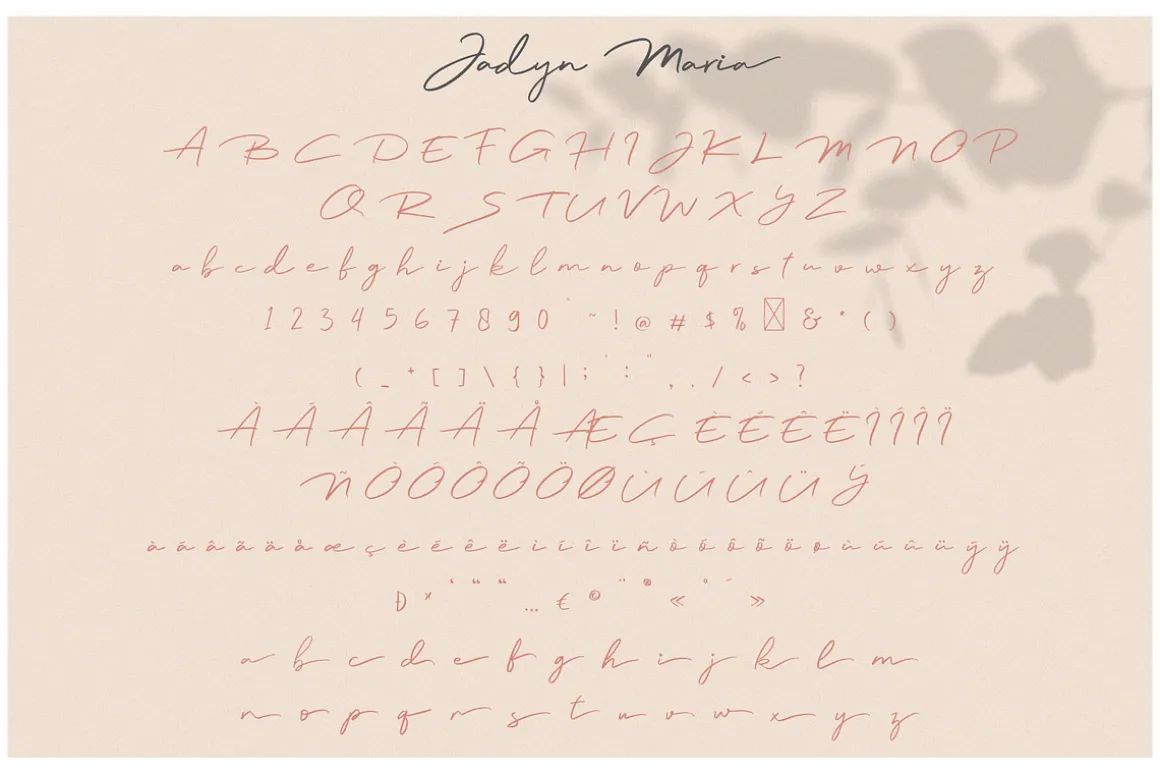 Jadyn Maria
A B C D E F G H I J K L M N O P
Q R S T U V W X Y Z
a b c d e f g h i j k l m n o p q r s t u v w x y z
1 2 3 4 5 6 7 8 9 0 ` ~ ! @ # $ % & * ( )
( _ + [ ] \ { } | ; ' : " , . / < > ?
À Á Â Ã Ä Å Æ Ç È É Ê Ë Ì Í Î Ï
Ñ Ò Ó Ô Õ Ö Ø Ù Ú Û Ü Ý
à á â ã ä å æ ç è é ê ë ì í î ï ñ ò ó ô õ ö ø ù ú û ü ý ÿ
Ð × ‘ “ “ … € © ¨ ® « ° ¯ »
a b c d e f g h i j k l m
n o p q r s t u v w x y z